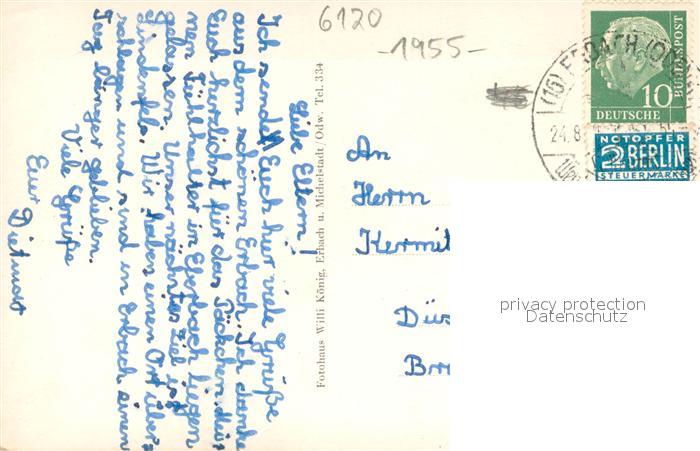 6120
-1955-
Liebe Eltern!
Ich sende Euch hier viele Grüße
aus dem schönen Erbach. Ich danke
Euch herzlichst für das Päckchen. Mei-
nen Füllhalter in Eberbach liegen
gelassen. Unser nächstes Ziel ist
Lindenfels. Wir haben einen Ort über-
schlagen und sind in Erbach einen
Tag länger geblieben.
Viele Grüße
Euer
Dietmar
Fotohaus Willi König, Erbach u. Michelstadt/Odw. Tel. 334
An
Herrn
Kermit
Düs
(16) ERBACH (ODENW
24.8.
10
DEUTSCHE
BUNDESPOST
NOTOPFER
2 BERLIN
STEUERMARKE
privacy protection
Datenschutz